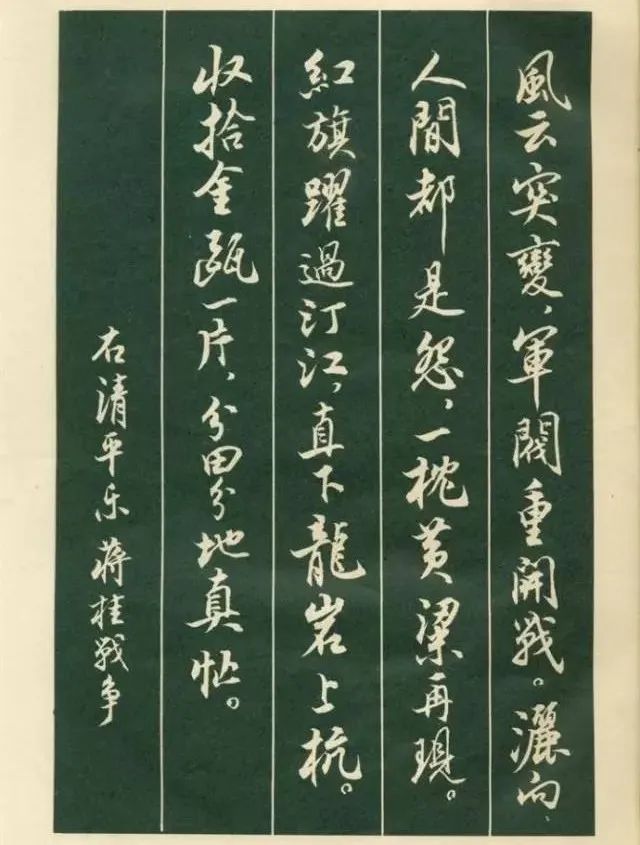 風云突變，軍閥重開戰。灑向
人間都是怨，一枕黃粱再現。
紅旗躍過汀江，直下龍岩上杭。
收拾金甌一片，分田分地真忙。
右清平乐蒋桂戰争